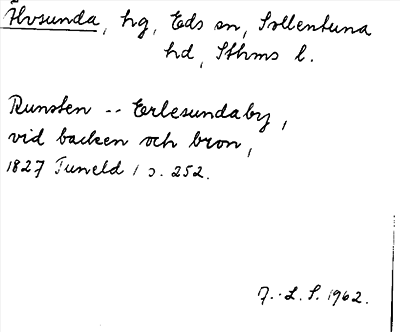 Älvsunda, hg, Eds sn, Sollentuna
hd, Sthms l.
Runsten -- Erlesundaby,
vid backen och bron,
1827 Tuneld 1 s. 252.
7. L. S. 1962.